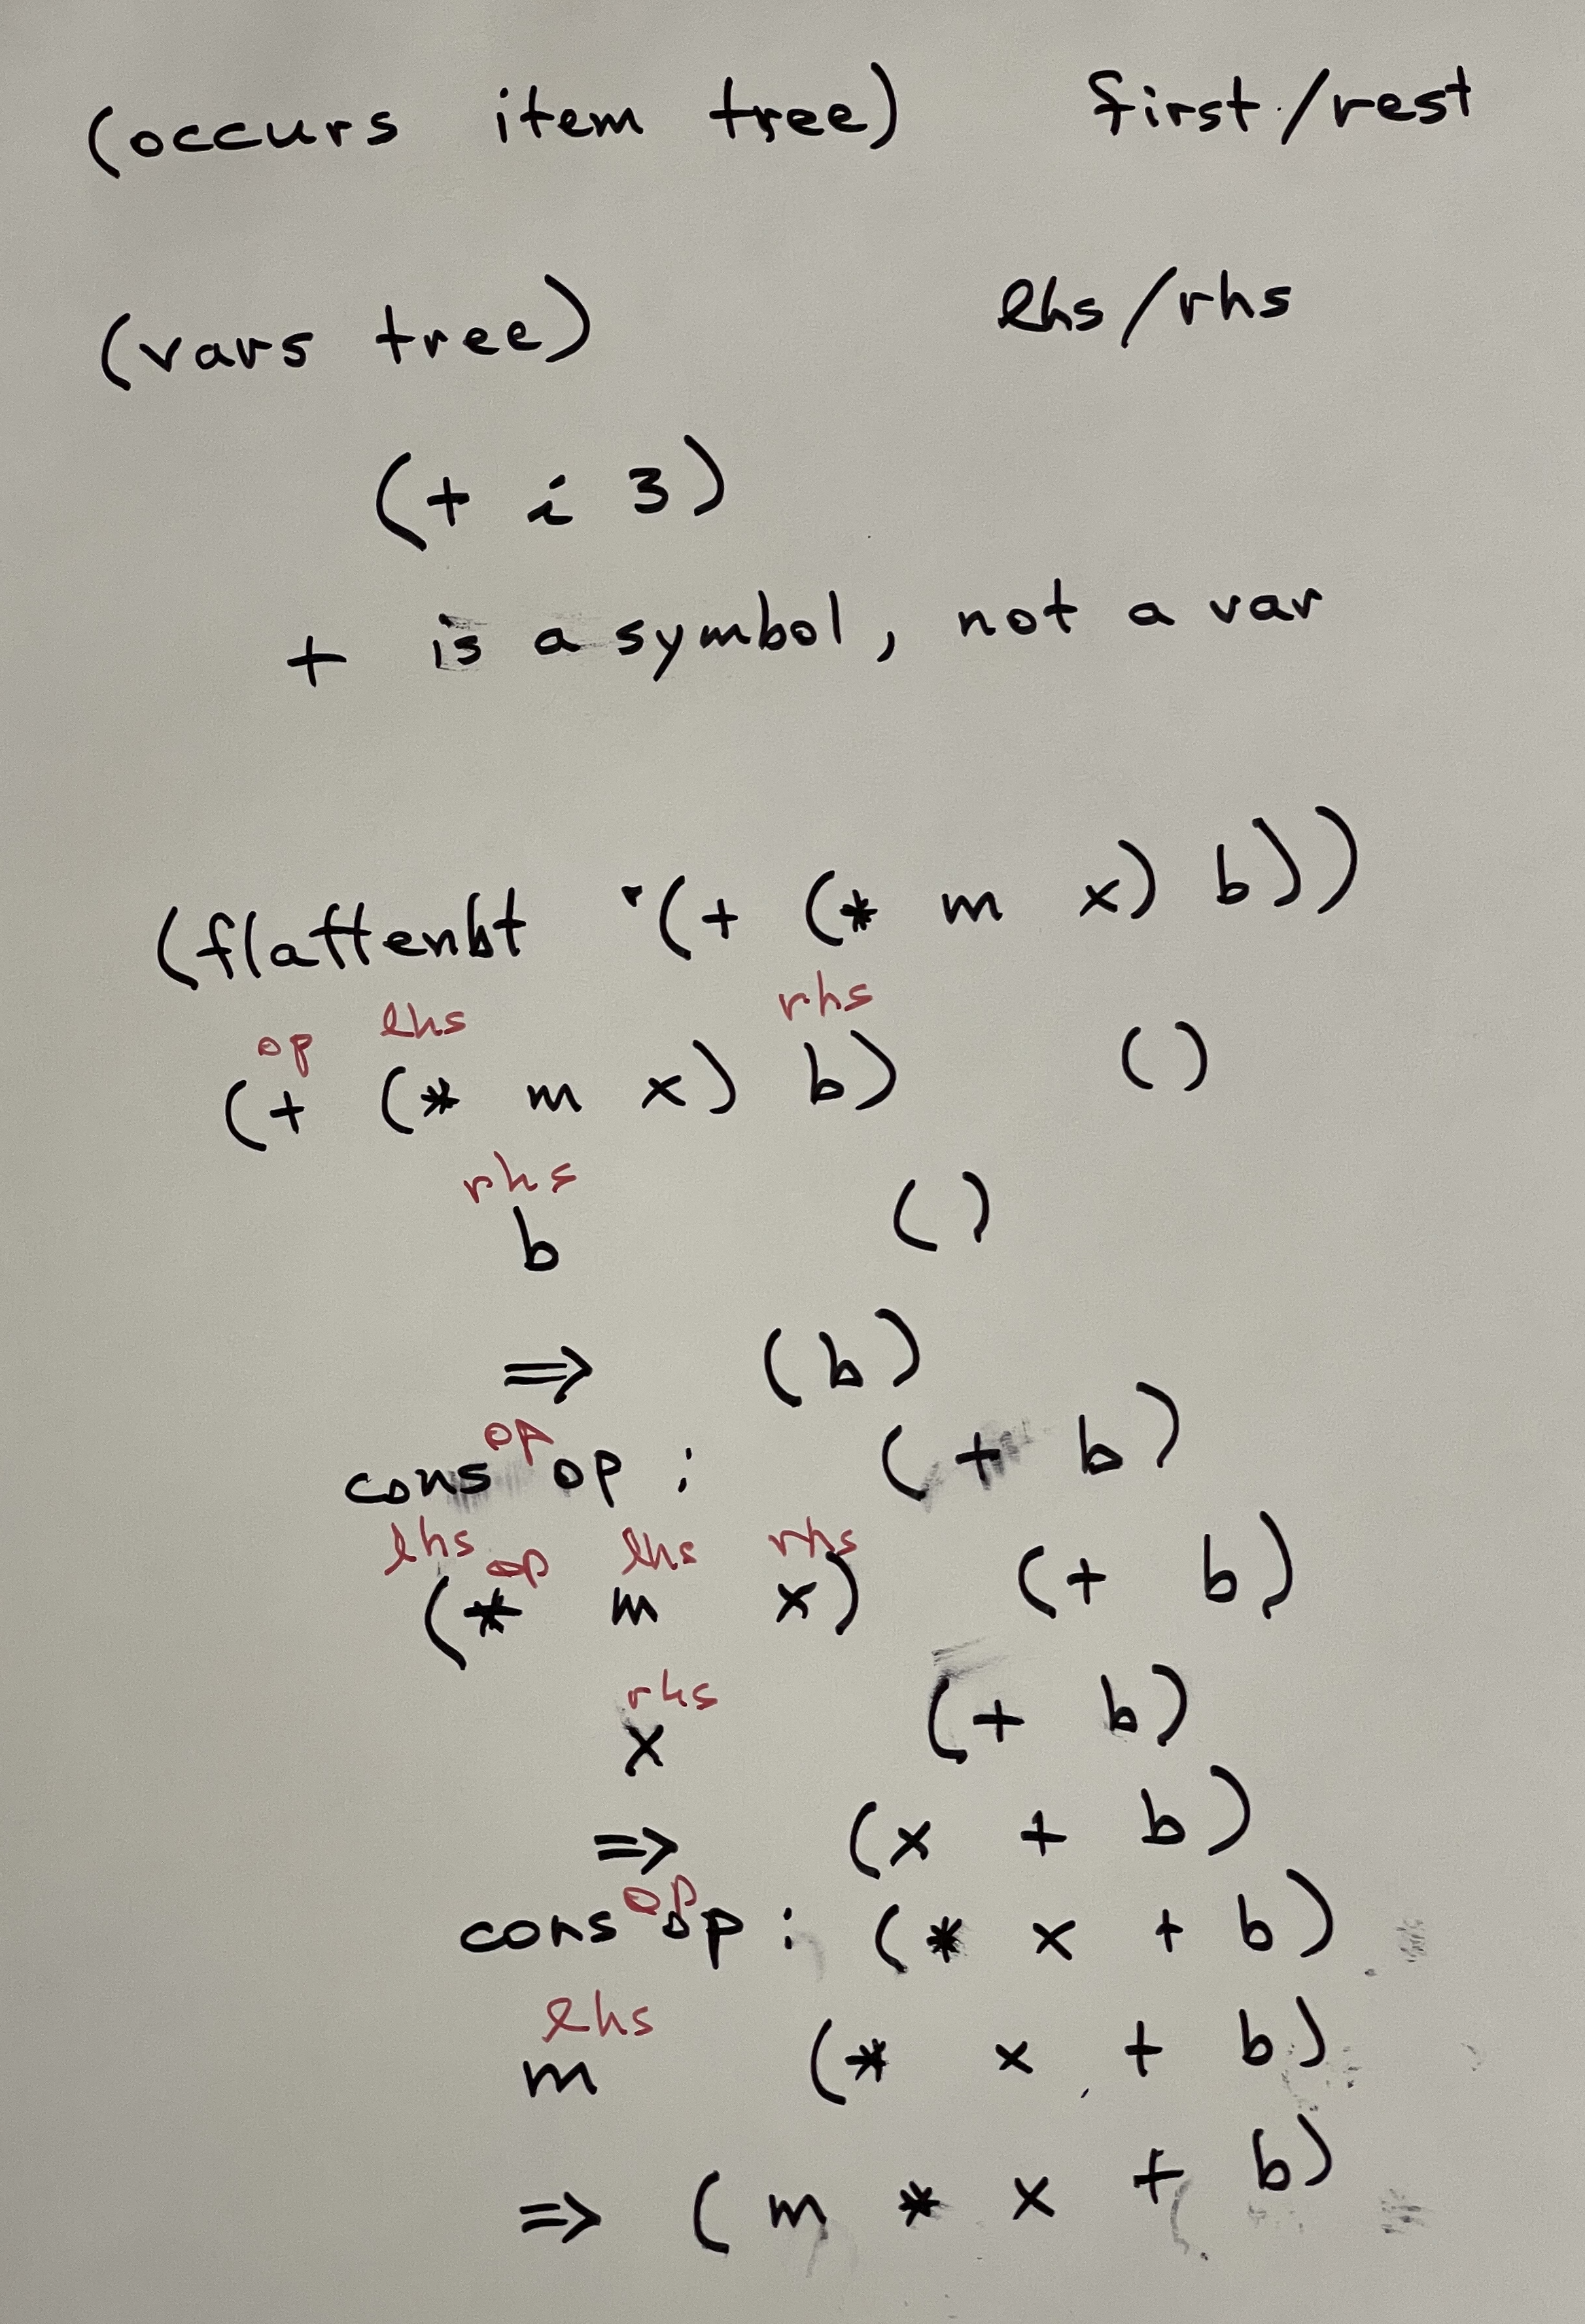 (occurs item tree) first/rest
(vars tree) lhs/rhs
(+ i 3)
+ is a symbol, not a var
(flattenbt '(+ (* m x) b))
op lhs rhs
(+ (* m x) b) ()
rhs
b ()
=> (b)
op
cons op : (+ b)
lhs op lhs rhs
(* m x) (+ b)
rhs
x (+ b)
=> (x + b)
op
cons op : (* x + b)
lhs
m (* x + b)
=> (m * x + b)